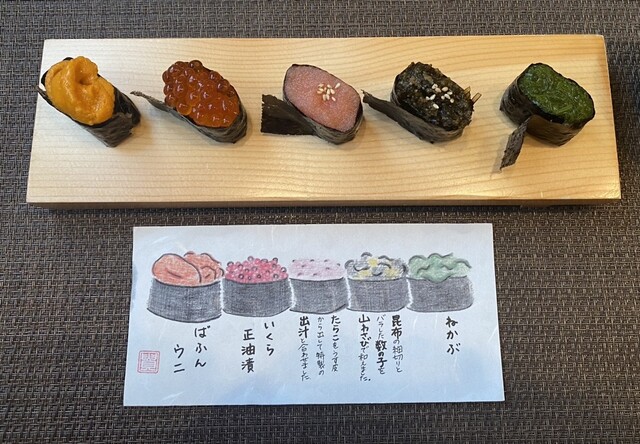 ねかぶ
昆布の細切りと
バラした数の子を
山わさびで和えました。
たらこをうす皮
から出して特製の
出汁と合わせました
いくら
正油漬
ばふん
ウニ